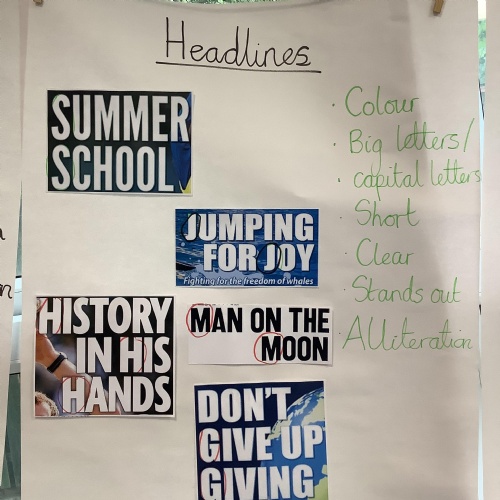 Headlines
SUMMER
SCHOOL
JUMPING
FOR JOY
Fighting for the freedom of whales
HISTORY
IN HIS
HANDS
MAN ON THE
MOON
DON'T
GIVE UP
GIVING
· Colour
· Big letters/
· capital letters
· Short
· Clear
· Stands out
· Alliteration